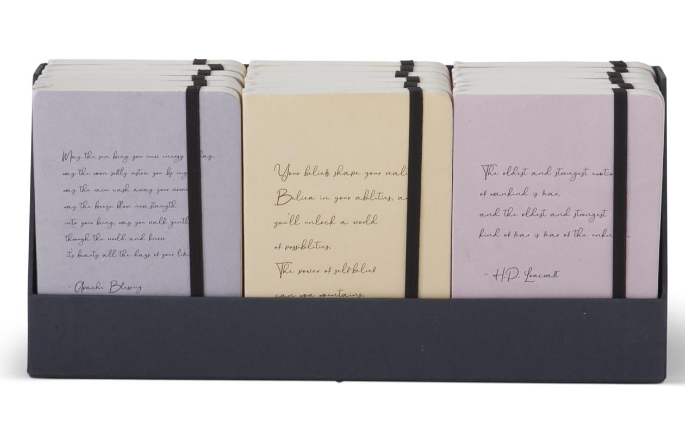 May the sun bring you new energy by day,
may the moon softly restore you by night,
may the rain wash away your
may the breeze blow new strength
into your being, may you walk gently
through the world and know
it's beauty all the days of your life.
- Apache Blessing
Your beliefs shape your reali
Believe in your abilities, a
you'll unlock a world
of possibilities.
The power of self-belief
can move mountains.
The oldest and strongest emotio
of mankind is fear,
and the oldest and strongest
kind of fear is fear of the unkn
- H.P. Lovecraft